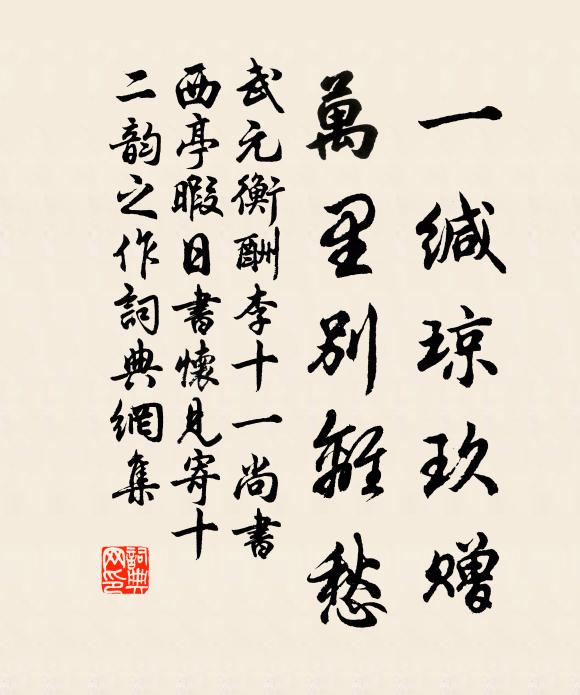 一缄琼玖赠
萬里别離愁
武元衡酬李十一尚書
西亭暇日書懷見寄十
二韵之作詞典網集
詞典
网印